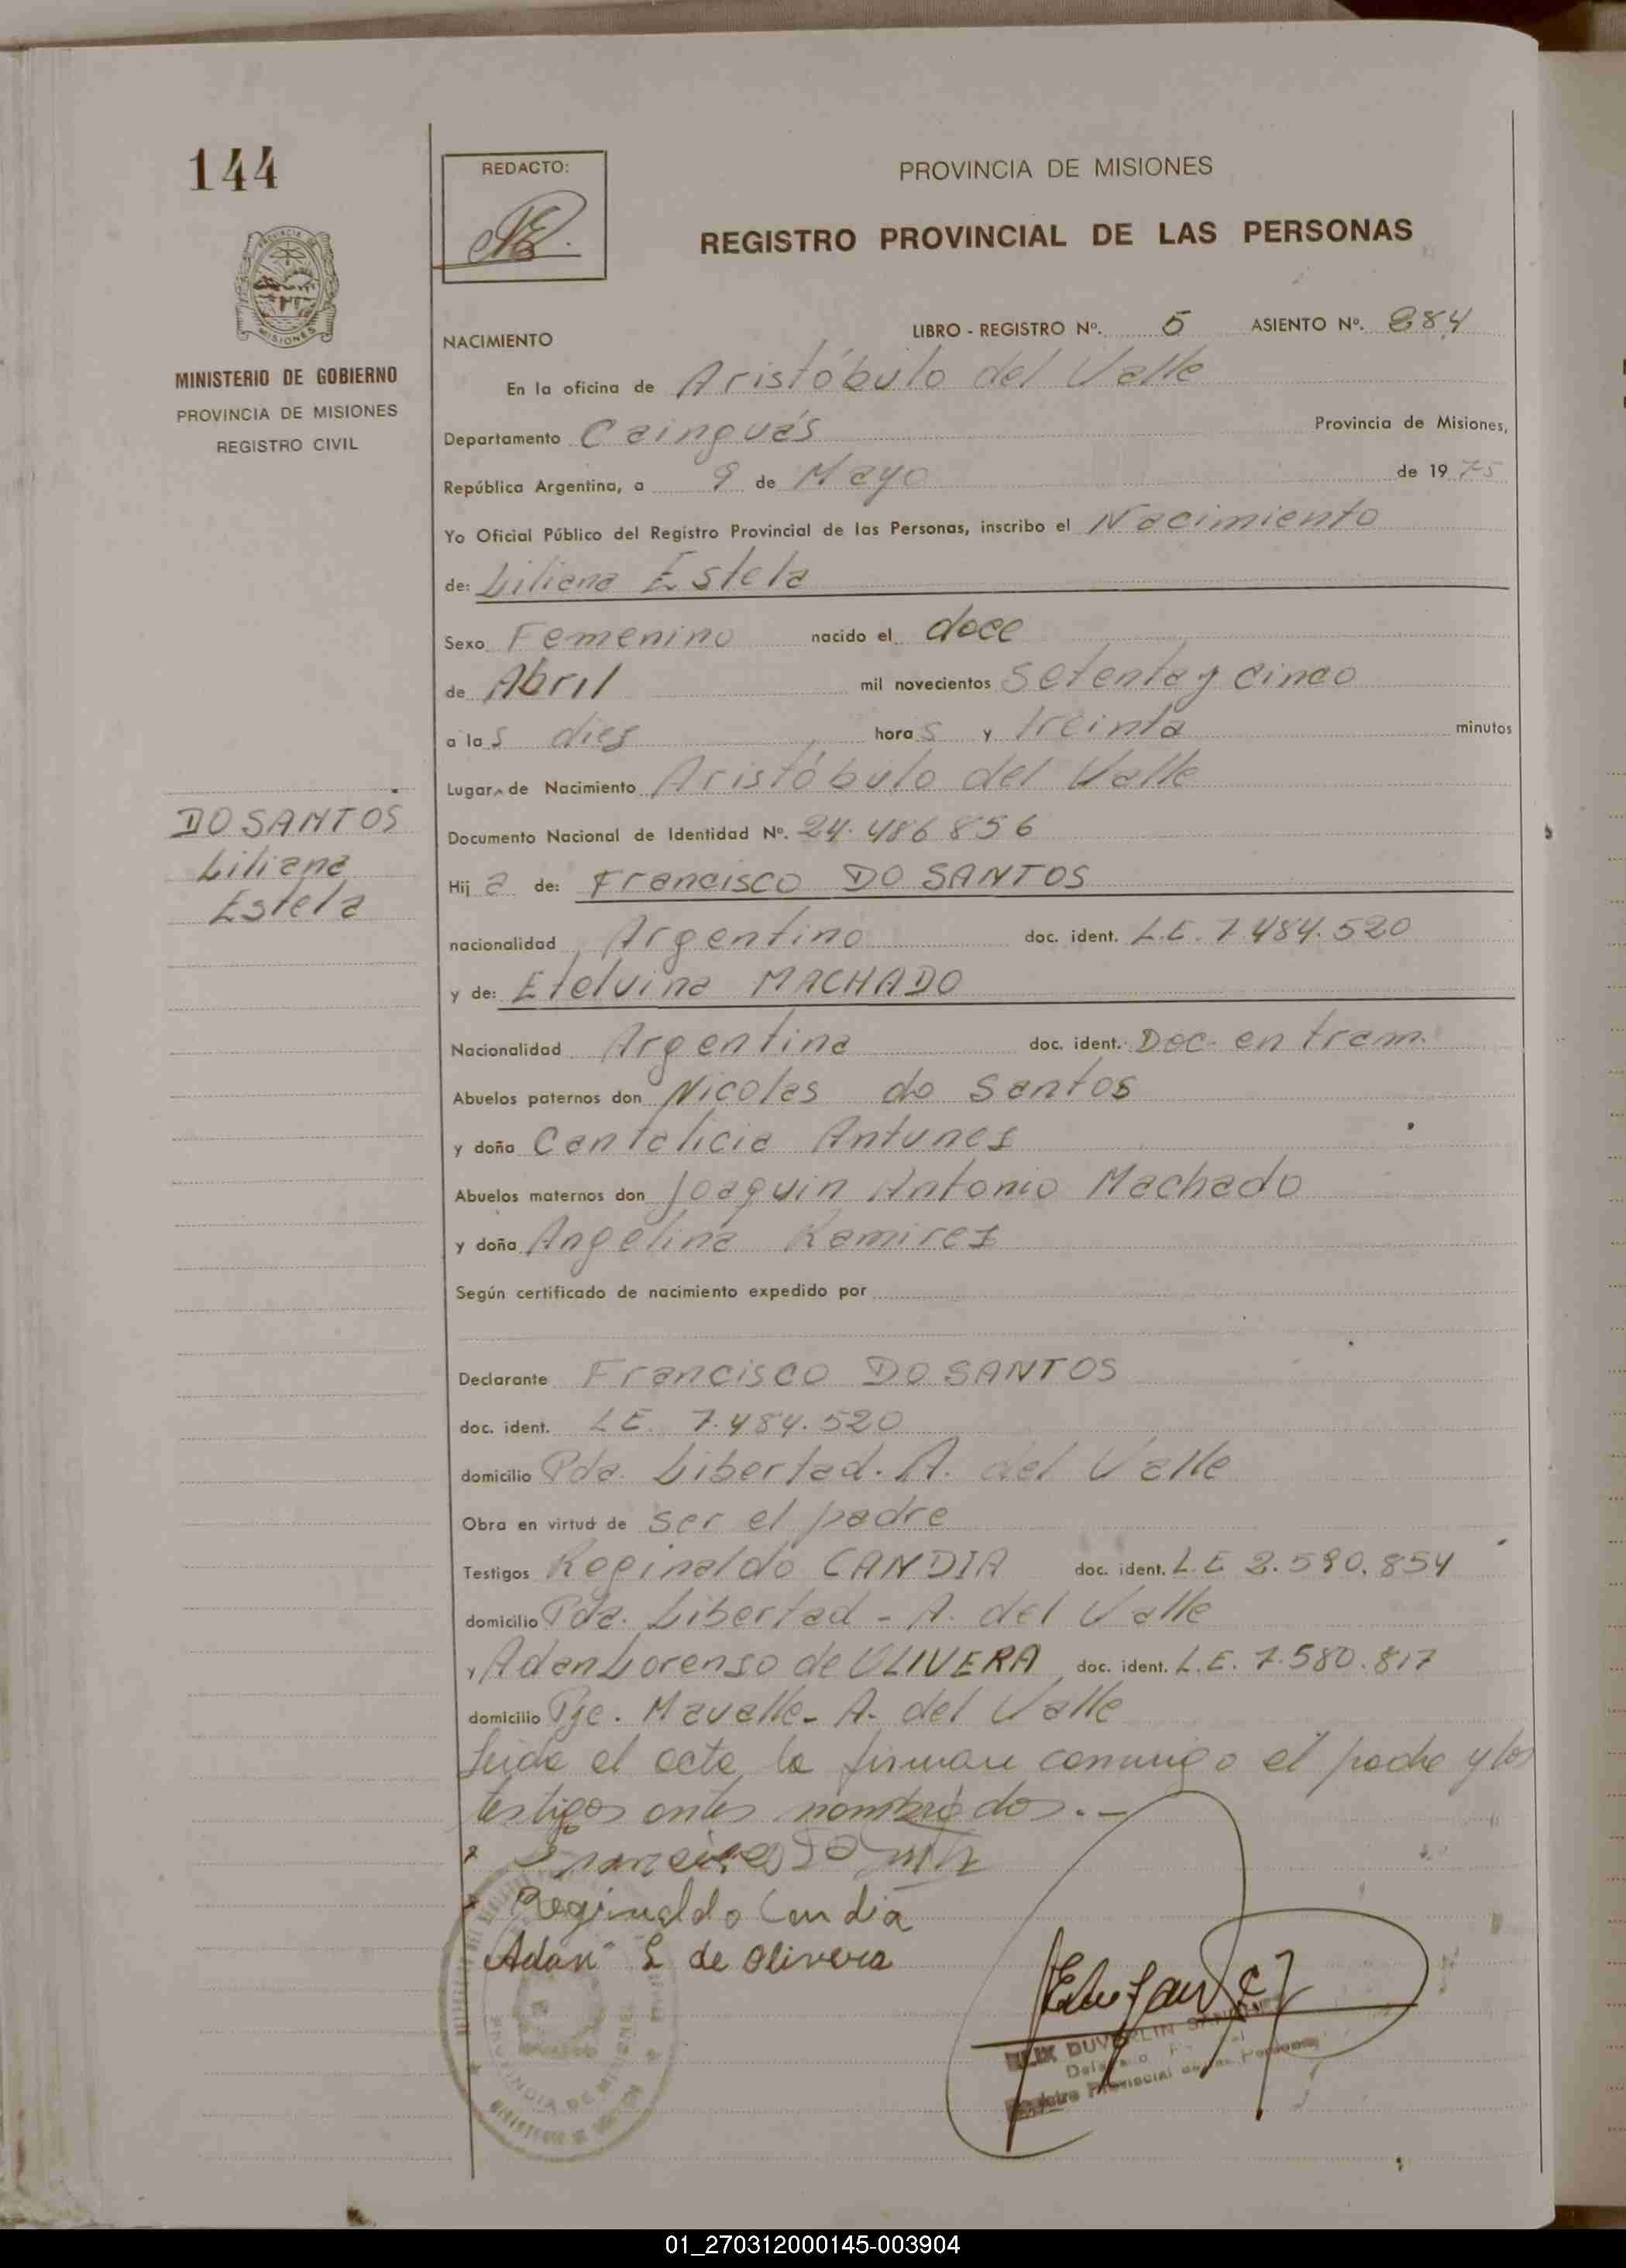 144
REDACTO:
PROVINCIA DE MISIONES
REGISTRO PROVINCIAL DE LAS PERSONAS
MINISTERIO DE GOBIERNO
PROVINCIA DE MISIONES
REGISTRO CIVIL
NACIMIENTO
LIBRO - REGISTRO Nº. 5 ASIENTO Nº. 884
En la oficina de Aristóbulo del Valle
Departamento Cainguás Provincia de Misiones,
República Argentina, a 9 de Mayo de 1975
Yo Oficial Público del Registro Provincial de las Personas, inscribo el Nacimiento
de: Liliana Estela
Sexo Femenino nacido el doce
de Abril mil novecientos setenta y cinco
a las dies horas y treinta minutos
Lugar de Nacimiento Aristóbulo del Valle
DO SANTOS
Liliana
Estela
Documento Nacional de Identidad Nº. 24.486856
Hija de: Francisco DO SANTOS
nacionalidad Argentino doc. ident. L.E. 7.484.520
y de: Etelvina MACHADO
Nacionalidad Argentina doc. ident. Doc. en tram.
Abuelos paternos don Nicolas do Santos
y doña Cantalicia Antunes
Abuelos maternos don Joaquin Antonio Machado
y doña Angelina Ramires
Según certificado de nacimiento expedido por
Declarante Francisco DO SANTOS
doc. ident. LE. 7.484.520
domicilio Pda. Libertad. A. del Valle
Obra en virtud de ser el padre
Testigos Reginaldo CANDIA doc. ident. L.E 2.590.854
domicilio Pda. Libertad - A. del Valle
y Adan Lorenso de OLIVERA doc. ident. L.E. 7.580.817
domicilio Pje. Mavalle - A. del Valle
Leida el acta la firman conmigo el padre y los
testigos antes nombrados.-
Francisco Do
Reginaldo Candia
Adan L de Olivera
PROVINCIA DE MISIONES
Registro Provincial de las Personas
01_270312000145-003904